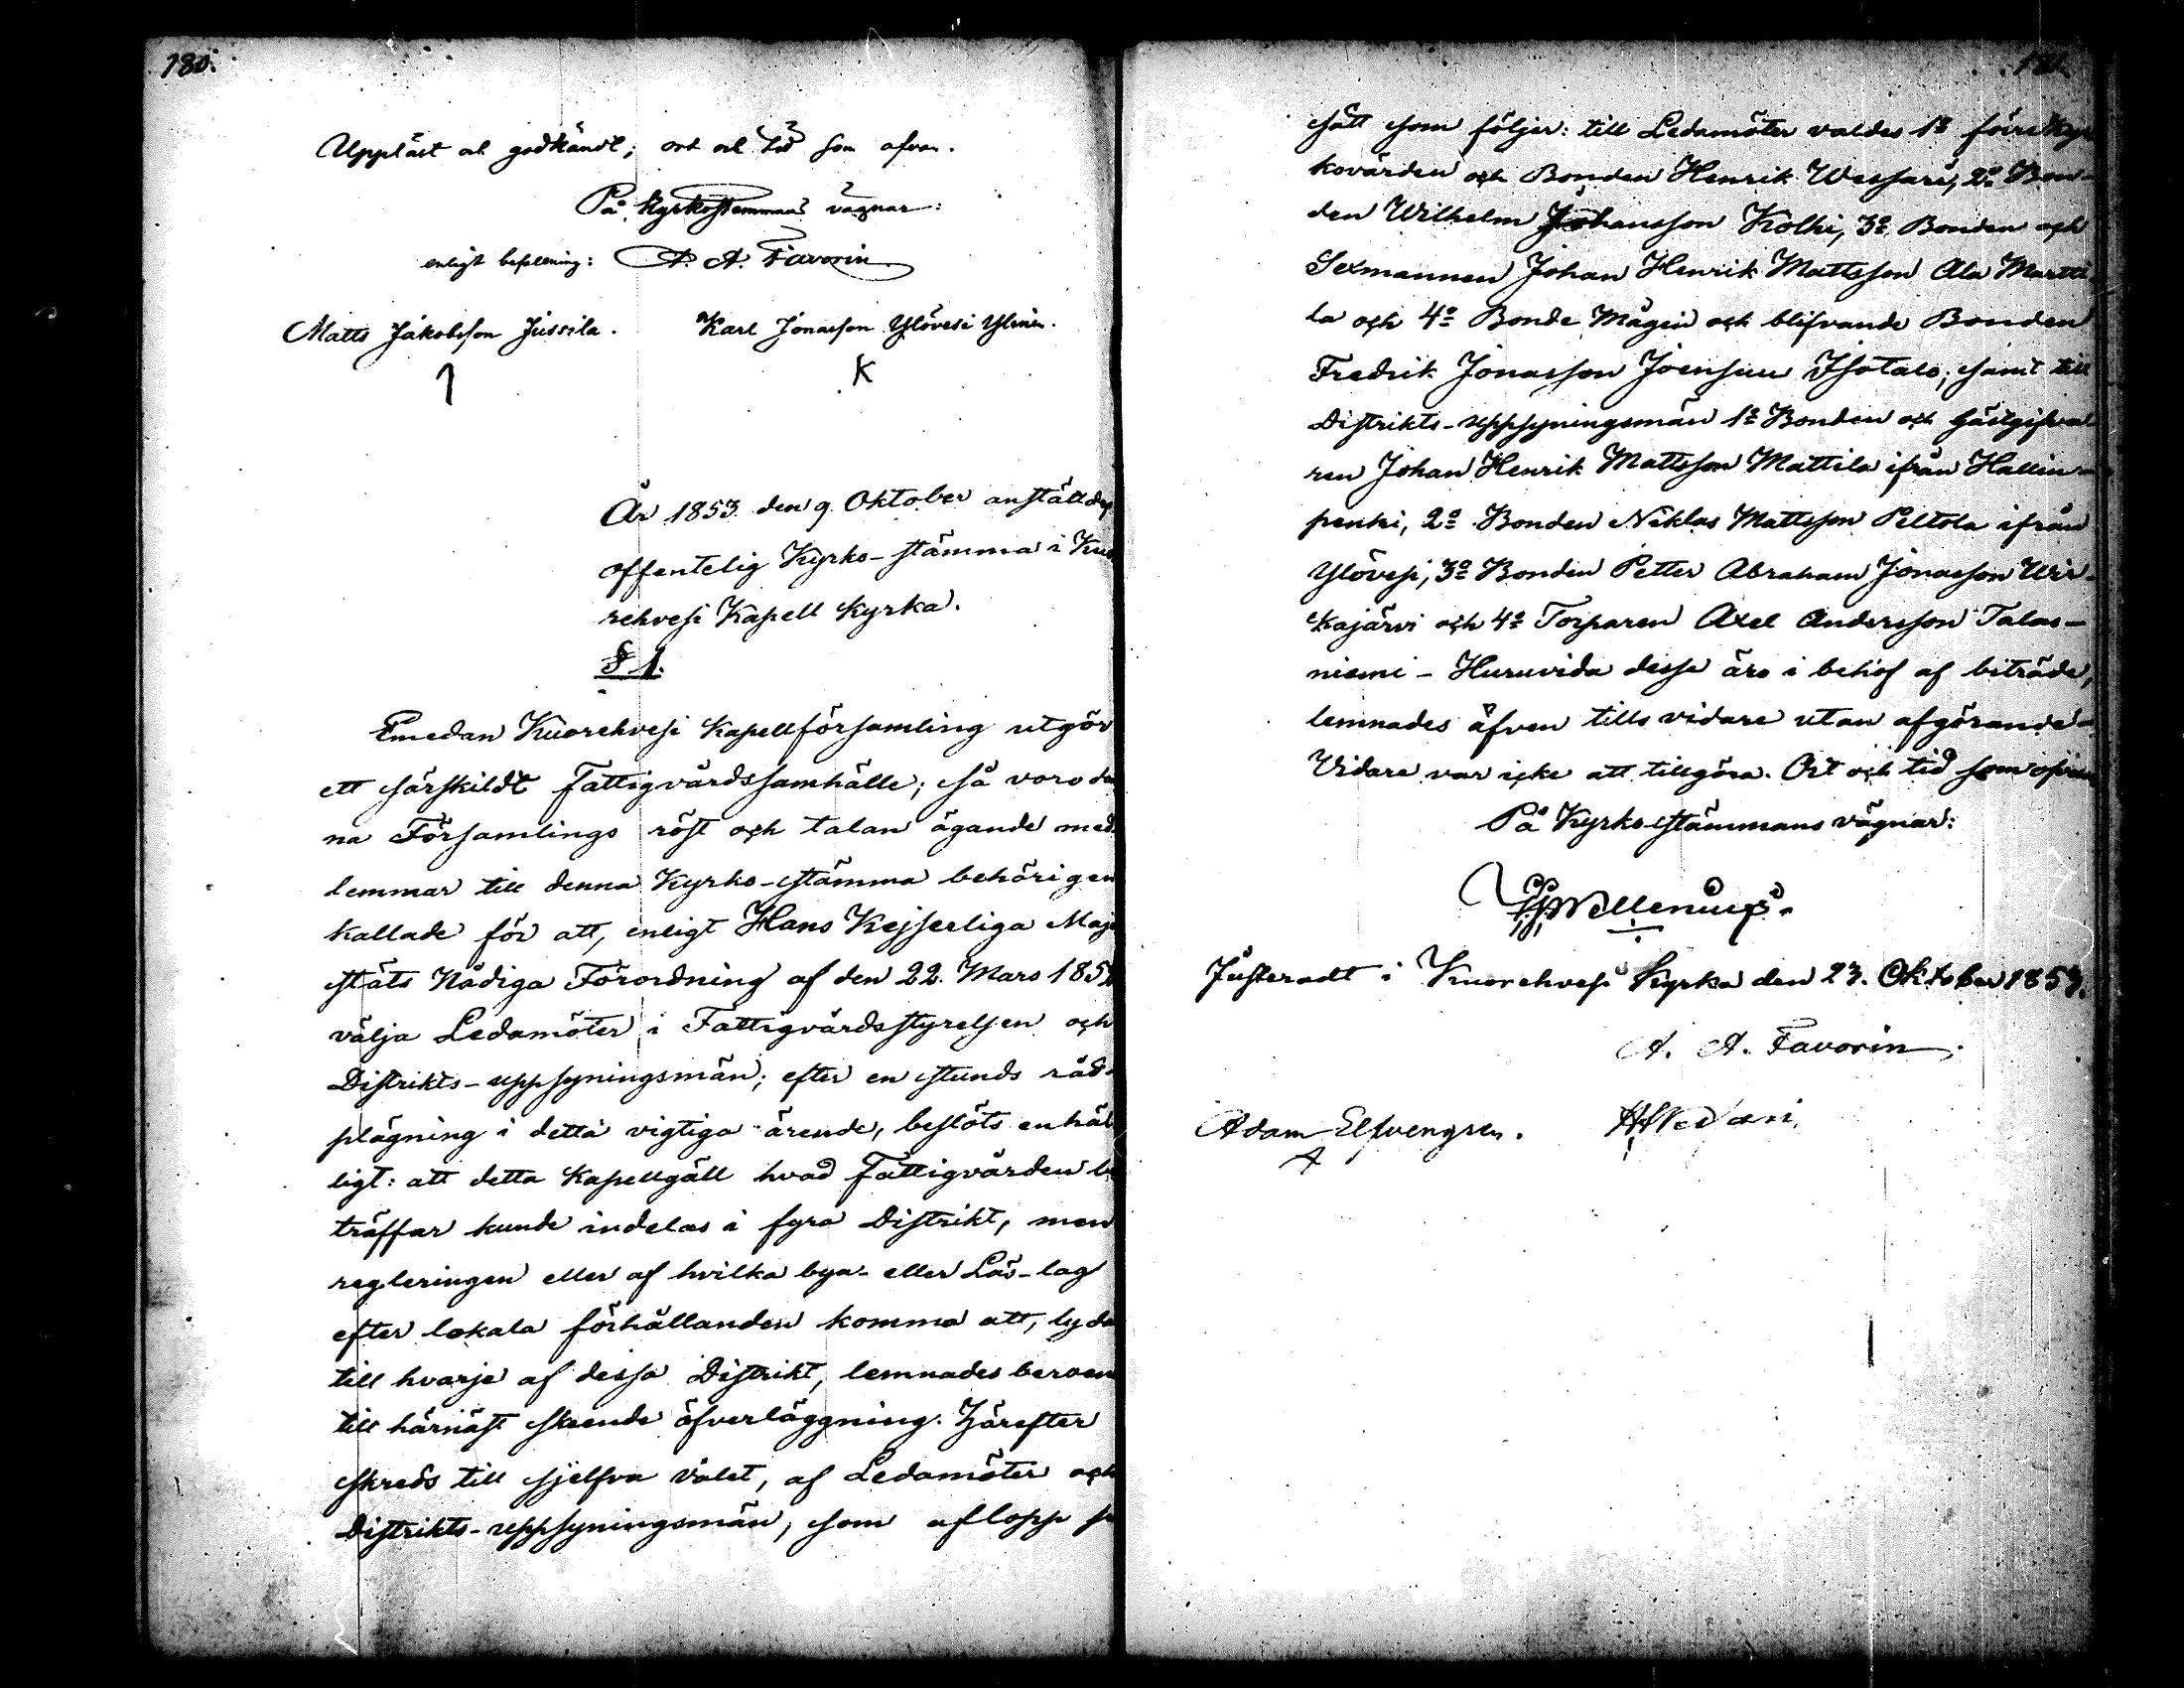 180.
Uppläst och godkändt; ort och tid som ofvan.
På Kyrkostemmans vägnar:
enligt befallning: A. A. Favorin
Matts Jakobsson Jussila. Karl Jonasson Ylövesi Ylinen.
K
År 1853 den 9 Oktober anställdes
offentelig Kyrko-stämma i Kuo
rehvesi Kapell Kyrka.
§ 1.
Emedan Kuorehvesi Kapellförsamling utgör
ett särskildt Fattigvårdssamhälle; så voro den
na Församlings röst och talan ägande med
lemmar till denna Kyrko-stämma behörigen
kallade för att, enligt Hans Kejserliga Maje
stäts Nådiga Förordning af den 22. Mars 1852
välja Ledamöter i Fattigvårdsstyrelsen och
Distrikts-uppsyningsmän; efter en stunds råd-
plägning i detta vigtiga ärende, beslöts enhäl
ligt: att detta Kapellgäll hvad Fattigvården be
träffar kunde indelas i fyra Distrikt, men
regleringen eller af hvilka bya- eller Läs-lag
efter lokala förhållanden komma att, lyda
till hvarje af dessa Distrikt, lemnades beroen
till härnäst skeende öfverläggning. Härefter
skreds till sjelfva valet, af Ledamöter och
Distrikts-uppsyningsmän, som aflopp på
sätt som följer: till Ledamöter valdes 1º före Kyr
kovärden och Bonden Henrik Wessari, 2º Bon-
den Wilhelm Johansson Kolhi, 3º Bonden och
Sexmannen Johan Henrik Mattsson Ala Martti
la och 4º Bonde Mågen och blifvande Bonden
Fredrik Jonasson Joensuu Isotalo; samt till
Distrikts-uppsyningsmän 1º Bonden och Gästgifva
ren Johan Henrik Mattsson Mattila ifrån Hallin-
penki, 2º Bonden Niklas Mattsson Peltola ifrån
Ylövesi, 3º Bonden Petter Abraham Jonasson Wir-
kajärvi och 4º Torparen Axel Andersson Talas-
niemi - Huruvida desse äro i behof af biträde,
lemnades äfven tills vidare utan afgörande -
Vidare var icke att tillgöra. Ort och tid som ofvan
På Kyrko-stämmans vägnar:
Justeradt i Kuorehvesi Kyrka den 23. Oktober 1853.
A. A. Favorin.
Adam Elfvengren.
A